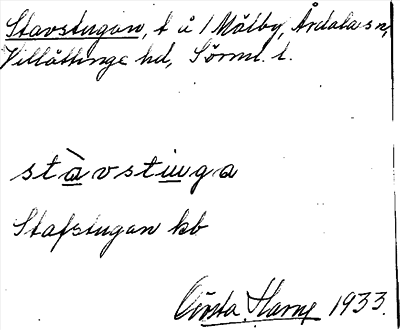 Stavstugan, t å 1 Mälby, Årdala sn,
Villåttinge hd, Sörml. l.
stàvstuga
Stafstugan kb
Gösta Harne 1933.